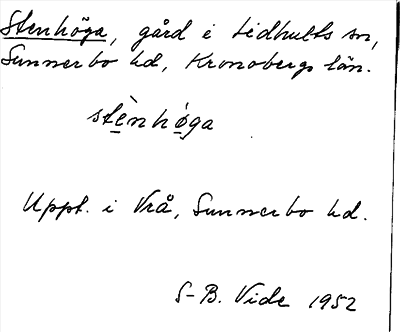 Stenhöga, gård i Lidhults sn,
Sunnerbo hd, Kronobergs län.
stènhöga
Uppt. i Vrå, Sunnerbo hd.
S-B. Vide 1952